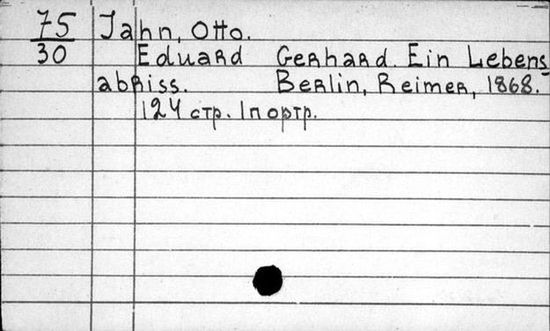 75 Jahn, Otto.
30 Eduard Gerhard. Ein Lebens
abriss. Berlin, Reimer, 1868.
124 стр. 1 портр.